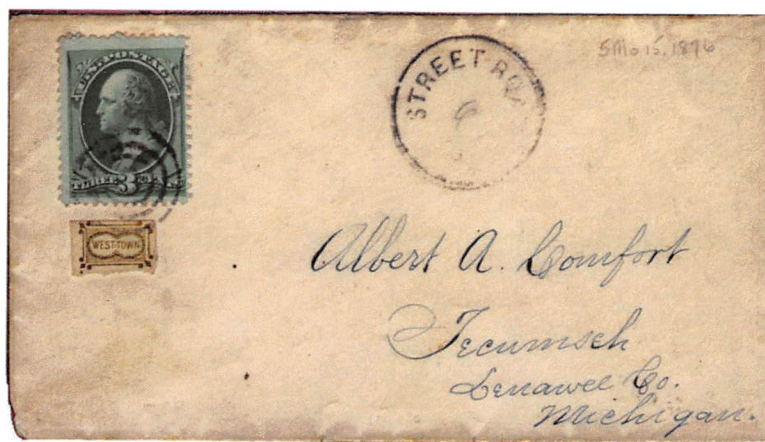 U.S. POSTAGE
THREE 3 CENTS
WEST-TOWN
STREET ROA
5 Mo 15, 1876
Albert A. Comfort
Tecumseh
Lenawee Co.
Michigan.